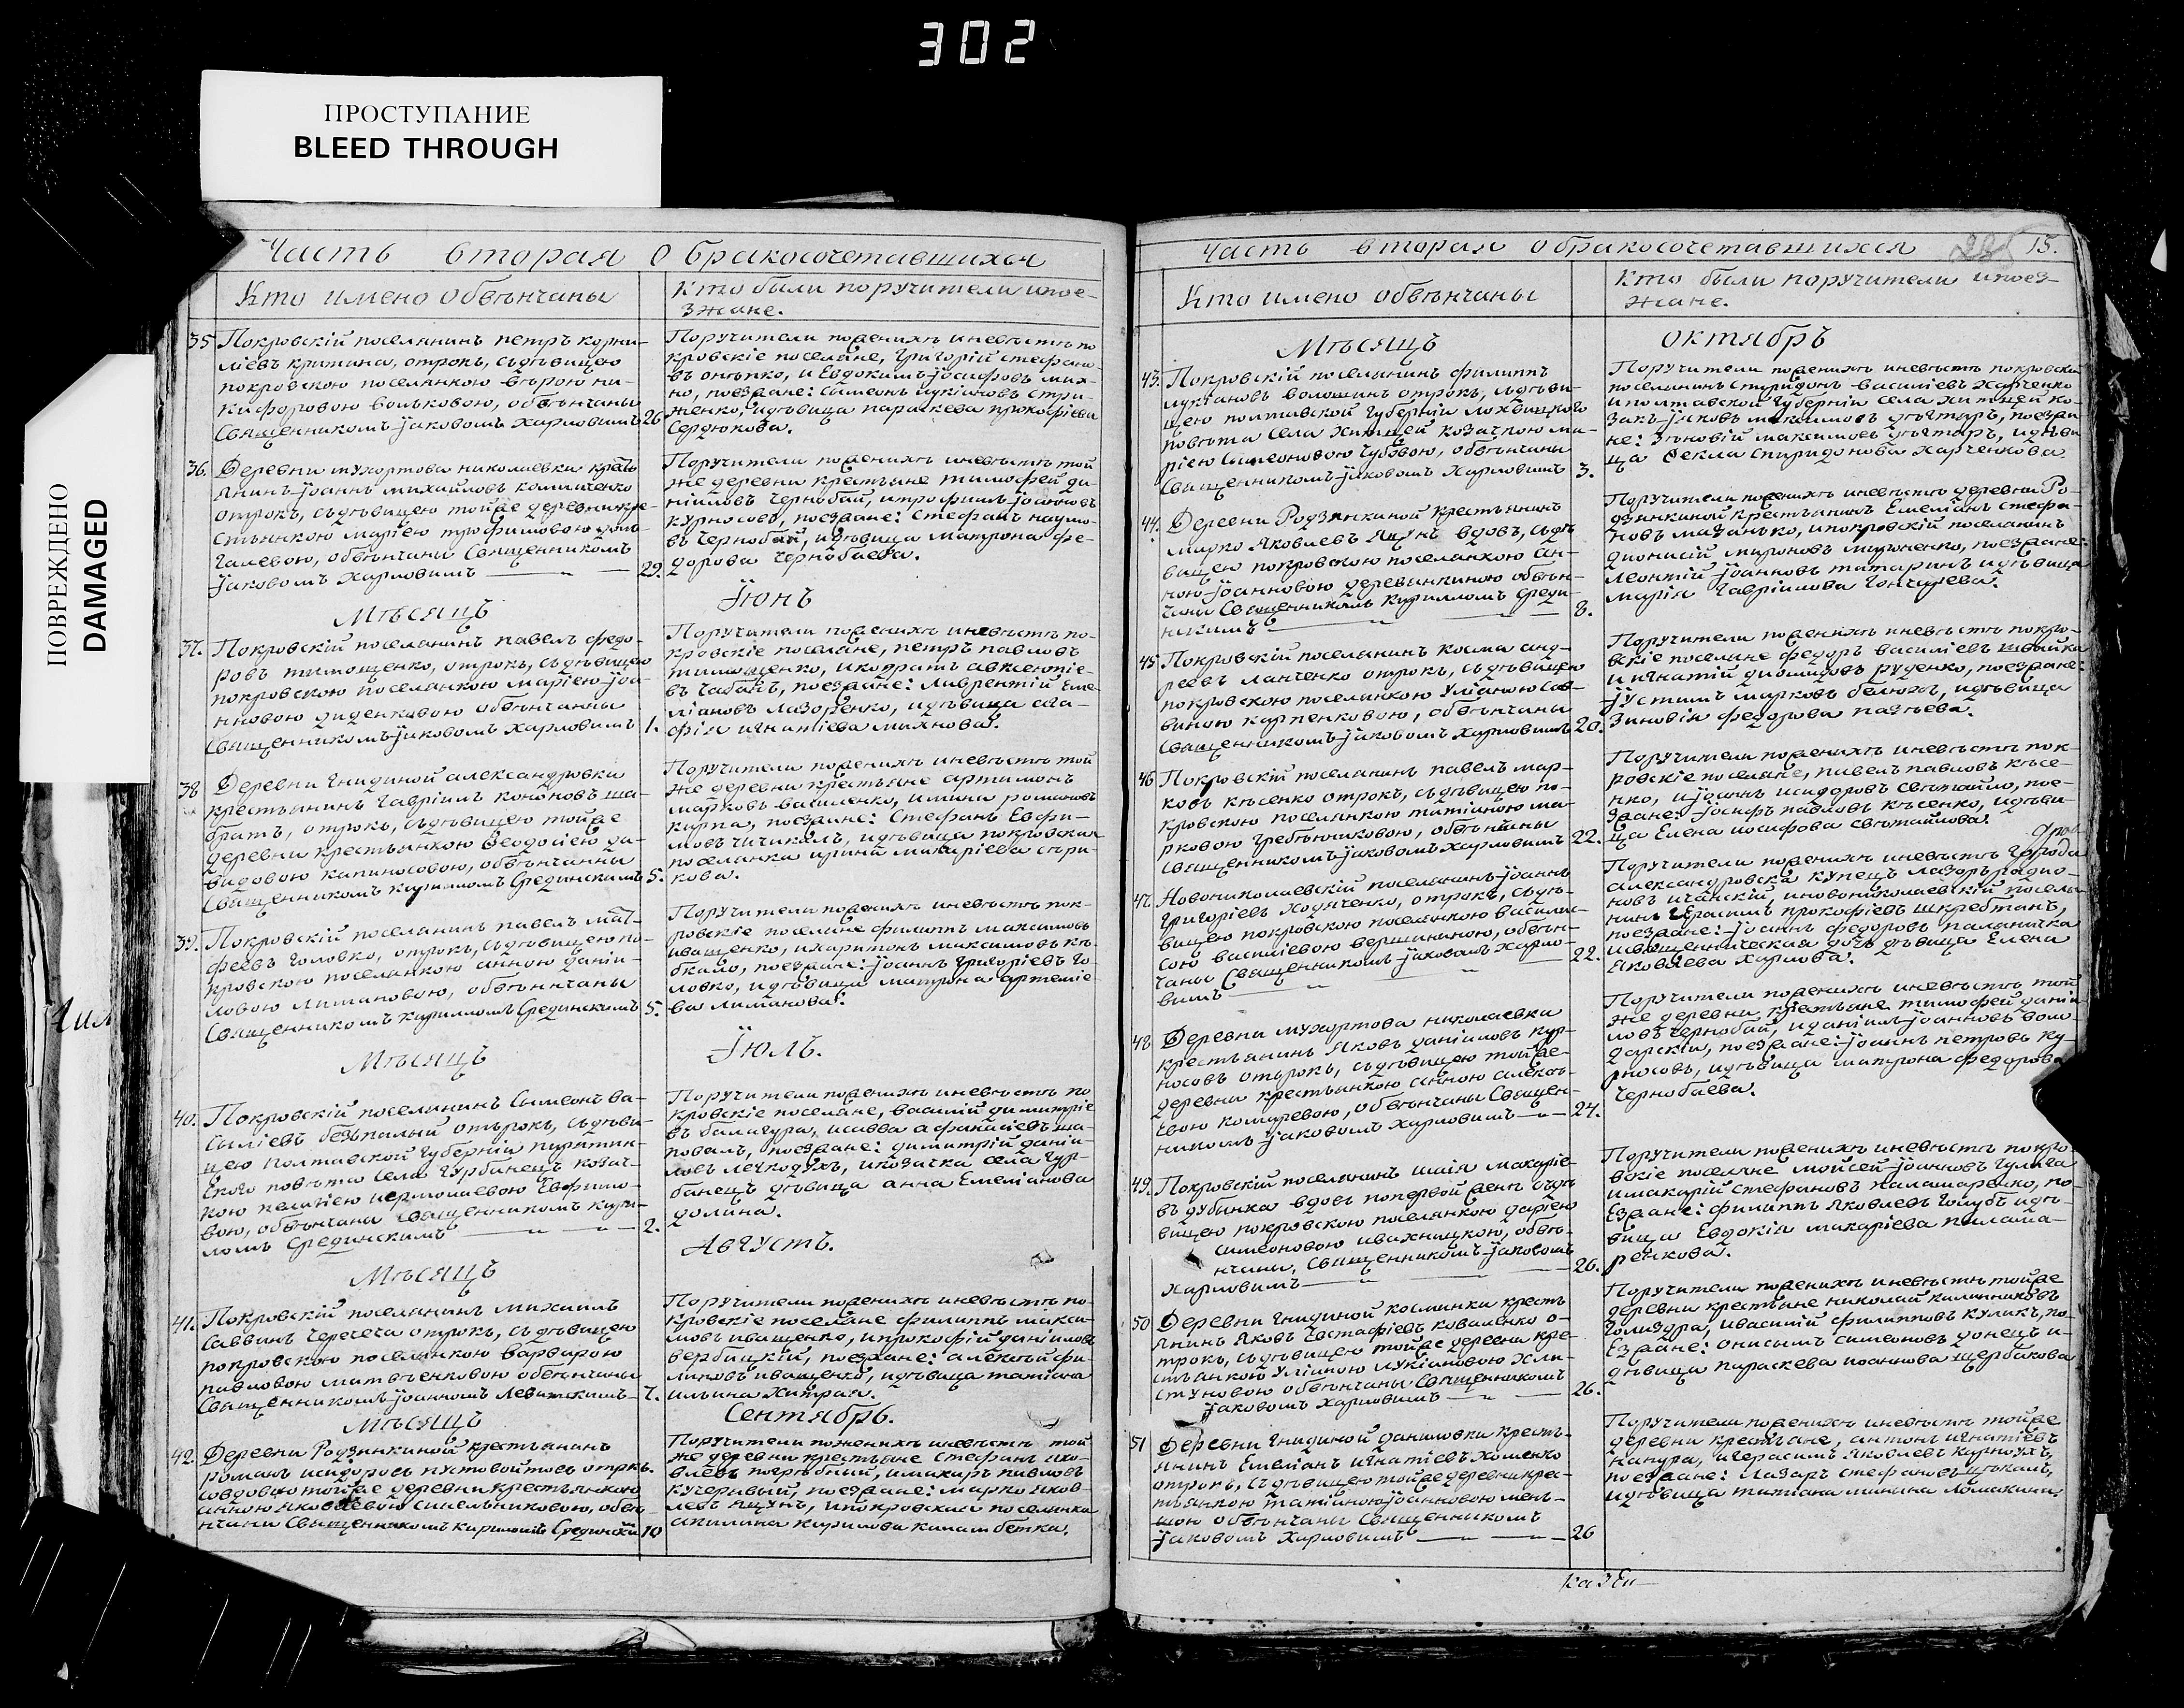 302
ПРОСТУПАНИЕ
BLEED THROUGH
ПОВРЕЖДЕНО
DAMAGED
Часть вторая о бракосочетавшихся
Кто имено обвѣнчаны
Кто были поручители ипое-
зжане.
35 Покровскій поселянинъ петръ корни-
ліевъ отрокъ, съдѣвицею
покровскою поселянкою вѣрою ни-
кифоровою волковою, обвѣнчаны
Священникомъ јаковомъ харловимъ 26
Поручители поженихѣ иневѣстѣ по
кровскіе поселяне, григорій стефано
въ онѣпко, и Евдокимъ јосифовъ мих-
но, поезжане: сѵмеонъ лукіановъ стри-
женко, идѣвица параскева прокофіева
Сердюкова.
36. Деревни мухортова николаевки крест
янинъ јоаннъ михайловъ
отрокъ, съдѣвицею тойже деревни кре-
стьянкою маріею трофимовою
галевою, обвѣнчани Священникомъ
јаковомъ харловимъ 29.
Поручители поженихѣ иневѣстѣ той
же деревни крестьяне тимофей да-
ніиловъ чернобай, итрофимъ јоанновъ
курносовъ, поезжане: Стефанъ наумо-
въ чернобай, идѣвица матрона фе-
дорова чернобаева.
Мѣсяцъ
Јюнь
37. Покровскій поселянинъ павелъ федо-
ровъ тимощенко, отрокъ, съдѣвицею
покровскою поселянкою маріею јоа-
нновою диденковою обвѣнчанны
Священникомъ јаковомъ харловимъ 1.
Поручители поженихѣ иневѣстѣ по-
кровскіе поселяне, петръ павловъ
тимощенко, икодратъ авксентіе-
въ чабанъ, поезжане: Лаврентій Еме-
ліановъ Лазоренко, идѣвица ага-
фія игнатіева михнова.
38 Деревни гнидиной александровки
крестьянинъ гавріилъ кононовъ ша-
братъ, отрокъ, съдѣвицею тойже
деревни крестьянкою Ѳеодосіею да-
видовою капиносовою, обвѣнчанны
священникомъ кирилломъ Срединскимъ 5.
Поручители поженихѣ иневѣстѣ той
же деревни крестьяне артимонъ
марковъ василенко, имина романовъ
кирпа, поезжане: Стефанъ Евфи-
мовъ чичикалъ, идѣвица покровская
поселянка ирина макаріева сѣри-
кова.
39. Покровскій поселянинъ павелъ мат-
феевъ головко, отрокъ, съдѣвицею по-
кровскою поселянкою анною даніи-
ловою лимановою, обвѣнчаны
Священникомъ кирилломъ Срединскимъ 5.
Поручители поженихѣ иневѣстѣ пок-
ровскіе поселяне филиппъ максимовъ
иващенко, ихаритонъ максимовъ
поезжане: јоаннъ григоріевъ го-
ловко, идѣвица матрона артеміе-
ва лиманова.
Мѣсяцъ
Јюль.
40. Покровскій поселянинъ Сѵмеонъ ва-
силіевъ безпалый отърокъ, съдѣви-
цею полтавской губерніи пирятин-
скаго повѣта села гурбинецъ козач-
кою пелагіею иермолаевою Евфимо-
вою, обвѣнчаны священникомъ кири-
ломъ Срединскимъ 2.
Поручители поженихѣ иневѣстѣ по
кровскіе поселяне, василій димитріе
въ балагура, исавва афанасіевъ ша-
повалъ, поезжане: димитрій даніи-
ловъ легкодухъ, икозачка села гур-
бинецъ дѣвица анна Емеліанова
долина.
Мѣсяцъ
Августъ.
41. Покровскій поселянинъ михаилъ
Саввинъ черечета отрокъ, съдѣвицею
покровскою поселянкою варварою
павловою матвѣенковою обвѣнчаны
Священникомъ јоанномъ Левитскимъ 7.
Поручители поженихѣ иневѣстѣ по-
кровскіе поселяне филиппъ макси-
мовъ иващенко, ипрокофій даніиловъ
вербицкій, поезжане: алексѣй фи-
липовъ иващенко, идѣвица татіана
ильина хитрая.
Мѣсяцъ
Сентябрь.
42. Деревни Родзянкиной крестьянинъ
романъ исидоровъ пустовойтовъ отрокъ.
совдовою тойже деревни крестьянкою
анною яковлевою синельниковою, обвѣ-
нчани Священникомъ кириломъ Срединский 10
Поручители поженихѣ иневѣстѣ той
же деревни крестьяне Стефанъ яко-
влевъ погрѣбный, имакаръ павловъ
кучерявый, поезжане: марко яков-
левъ яцунъ, ипокровская поселянка
акилина кирилова
Часть вторая о бракосочетавшихся
15.
Кто имено обвѣнчаны
Кто были поручители ипоез-
жане.
Мѣсяцъ
октябръ
43. Покровскій поселянинъ филиппъ
лукіановъ волошинъ отрокъ, съдѣви-
цею полтавской губерніи лохвицкого
повѣта села хитцей козачкою ма-
ріею Сѵмеоновою чубовою, обвѣнчаны
Священникомъ јаковомъ харловимъ 3.
Поручители поженихѣ иневѣстѣ покровски
поселянинъ спиридонъ василіевъ харченко
иполтавской губерніи села хитцей ко-
закъ јаковъ максимовъ дѣгтяръ, поезжа
не: Зѣновій максимовъ дѣгтяръ, идѣви
ца Ѳекла спиридонова харченкова
44. Деревни Родзянкиной крестьянинъ
марко яковлевъ яцунъ вдовъ, съдѣ
вицею покровскою поселянкою ан-
ною јоанновою деревянкиною обвѣн-
чани Священникомъ кирилломъ Среди-
нскимъ 8.
Поручители поженихѣ иневѣстѣ деревни Ро-
дзянкиной крестьянинъ Емеліанъ стефа-
новъ мизинько, ипокровскій поселянинъ
дионисій мироновъ мироненко, поезжане:
леонтій јоанновъ татаринъ идѣвица
марія гавріилова гончарева.
45 Покровскій поселянинъ косма анд-
реевъ ланченко отрокъ, съдѣвицею
покровскою поселянкою уліаною сав-
виною карпенковою, обвѣнчаны
Священникомъ јаковомъ харловимъ 20.
Поручители поженихѣ иневѣстѣ покро-
вскіе поселяне федоръ василіевъ швайка
и игнатій диомидовъ руденко, поезжане:
јустинъ марковъ белюхъ, идѣвица
Зиновія федорова
46 Покровскій поселянинъ павелъ мар-
ковъ кѣсенко отрокъ, съдѣвицею по-
кровскою поселянкою татіаною ма-
рковою гребѣнниковою, обвѣнчаны
Священникомъ јаковомъ харловимъ 22.
Поручители поженихѣ иневѣстѣ пок-
ровскіе поселяне, павелъ павловъ кѣсе-
нко, ијоаннъ исидоровъ свѣтайло, пое-
зжане: јосифъ павловъ кѣсенко, идѣви-
ца Елена иосифова свѣтайлова.
47 Новониколаевскій поселянинъ јоаннъ
григоріевъ ходиченко, отрокъ, съдѣ-
вицею покровскою поселянкою васили-
сою василіевою вершининою, обвѣн-
чаны Священникомъ јаковомъ харло-
вимъ 22.
Поручители поженихѣ иневѣстѣ города
александровска купецъ лазоръ радио-
новъ иновониколаевскій поселя
нинъ герасимъ прокофіевъ шкребтанъ,
поезжане: јоаннъ федоровъ паланичка
исвященническая дочь дѣвица Елена
яковлева харлова.
48 Деревни мухортова николаевки
крестьянинъ яковъ даніиловъ кур-
носовъ отърокъ, съдѣвицею тойже-
деревни крестьянкою анною алексѣ-
евою комаревою, обвѣнчаны Священ-
никомъ јаковомъ харловимъ 24.
Поручители поженихѣ иневѣстѣ той
же деревни крестьяне тимофей даніи
ловъ чернобай, иданіилъ јоанновъ воло-
дарскій, поезжане: јоаннъ петровъ ку-
рносовъ, идѣвица матрона федорова
чернобаева.
49. Покровскій поселянинъ исаія макаріе-
въ дубинка вдовъ попервой женѣ съдѣ
вицею покровскою поселянкою даріею
симеоновою ивахницкою, обвѣ-
нчаны, Священникомъ јаковомъ
харловимъ 26.
Поручители поженихѣ иневѣстѣ покро
вскіе поселяне мойсей јоанновъ гуляга
имакарій стефановъ паламаренко, по-
Езжане: филиппъ яковлевъ голубъ идѣ-
вица Евдокія макаріева палама-
ренкова.
50 Деревни гнидиной космынки крестъ
янинъ яковъ Евстафіевъ коваленко о-
трокъ, съдѣвицею тойже деревни кре-
стьянкою уліаною лукіановою хли-
стуновою обвѣнчаны Священникомъ
јаковомъ харловимъ 26.
Поручители поженихѣ иневѣстѣ тойже
деревни крестьяне николай калинниковъ
голиздра, ивасилій филипповъ куликъ, по-
Езжане: онисимъ симеоновъ донецъ и-
дѣвица параскева иоаннова щербакова
51 Деревни гнидиной даниловки кресть-
янинъ Емеліанъ игнатіевъ хоменко
отрокъ, съдѣвицею тойже деревни кре-
стьянкою татіаною јоанновою мень-
шою обвѣнчаны Священникомъ
јаковомъ харловимъ 26
Поручители поженихѣ иневѣстѣ тойже
деревни крестьяне, антонъ игнатіевъ
канура, игерасимъ яковлевъ карноухъ,
поезжане: лазаръ стефановъ цѣкалъ,
идѣвица татіана минина ломакина.